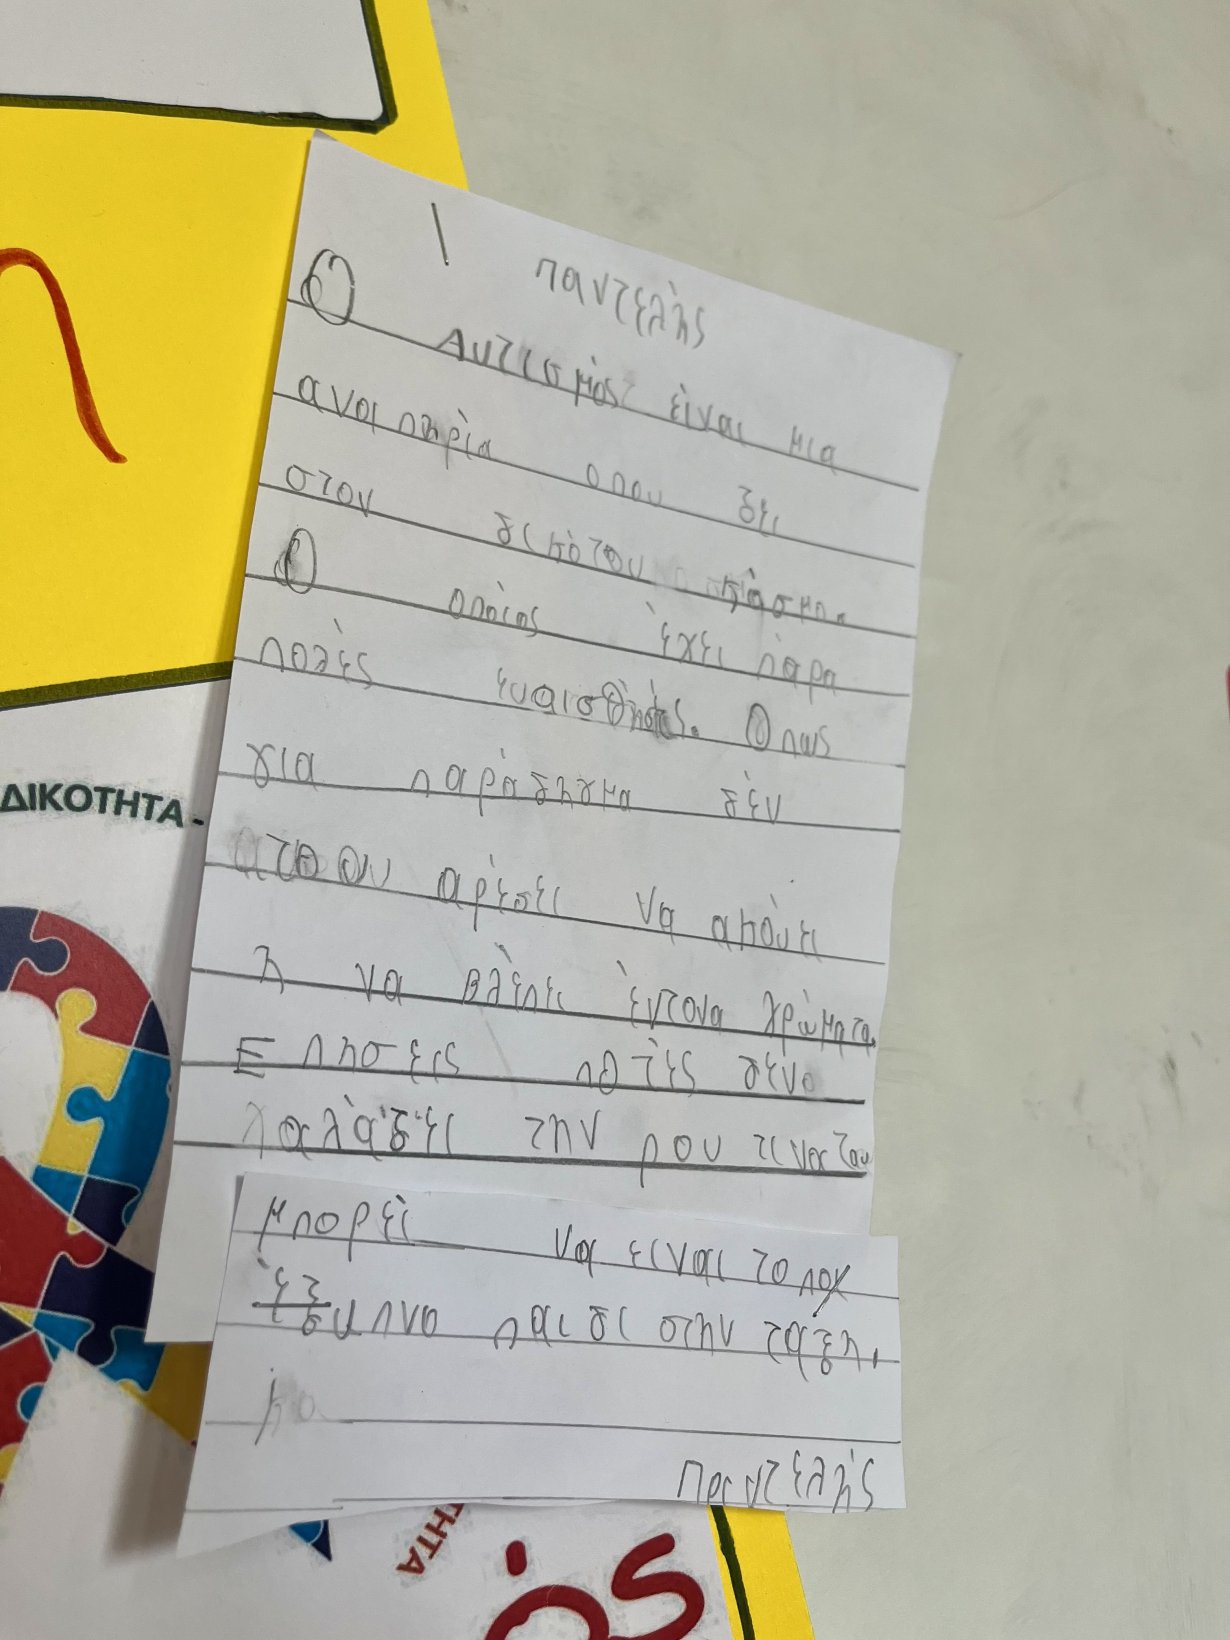 παντελής
Ο Αυτισμός είναι μια
αναπηρία οπου ζει
στον δικότου κόσμο.
Ο οποίος έχει πάρα
πολές ευαισθησίες. Οπως
για παράδηγμα δέν
ατου αρέσει να ακούει
ή να βλέπει έντονα χρώματα.
Επησεις ποτές δένο
χαλάζει την ρουτινατου
μπορεί να ειναι το ποχ
έξυπνο παιδι στην τάξη.
κα
Παντελής
ΔΙΚΟΤΗΤΑ -
ΤΗΤΑ
ός